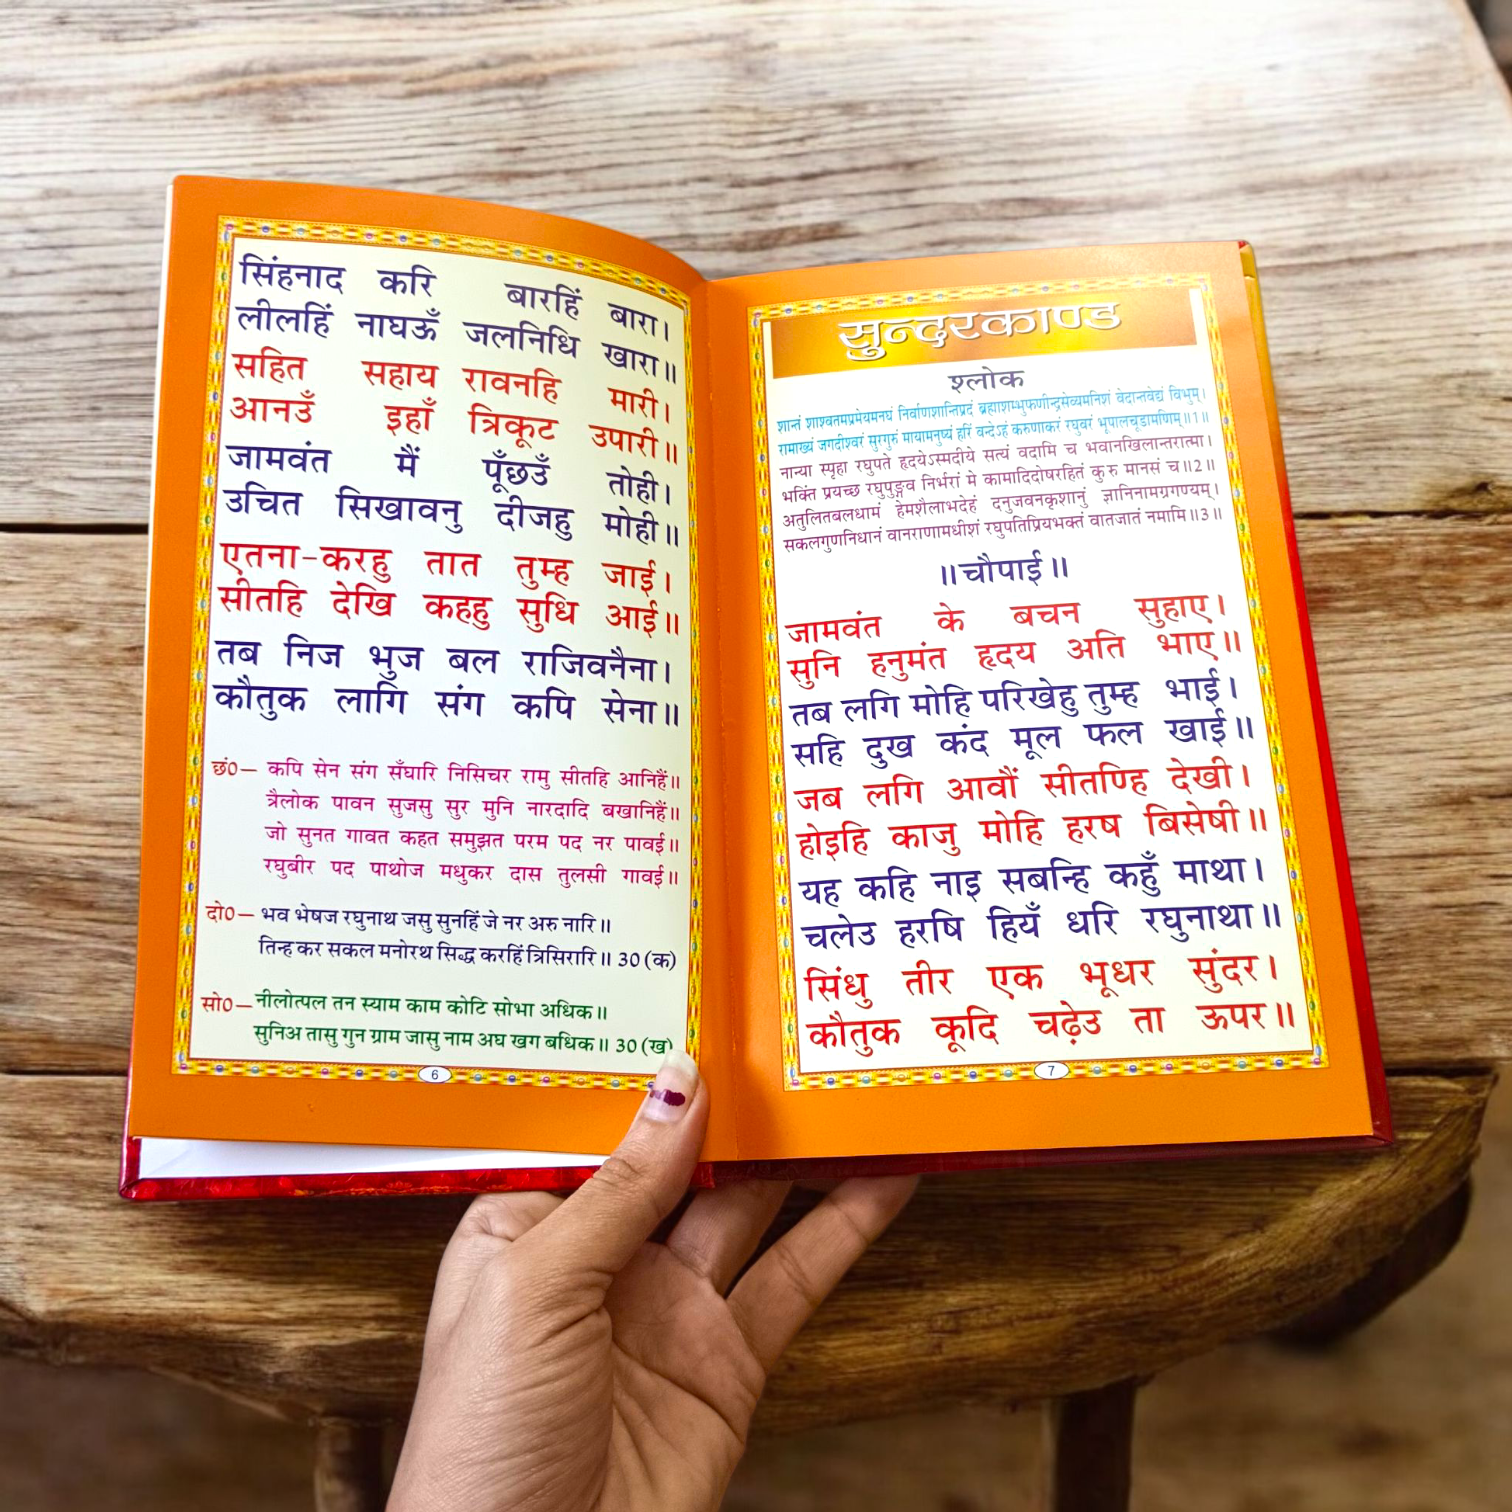 सिंहनाद करि बारहिं बारा।
लीलहिं नाघऊँ जलनिधि खारा॥
सहित सहाय रावनहि मारी।
आनउँ इहाँ त्रिकूट उपारी॥
जामवंत मैं पूँछउँ तोही।
उचित सिखावनु दीजहु मोही॥
एतना-करहु तात तुम्ह जाई।
सीतहि देखि कहहु सुधि आई॥
तब निज भुज बल राजिवनैना।
कौतुक लागि संग कपि सेना॥
छं0— कपि सेन संग सँघारि निसिचर रामु सीतहि आनिहैं॥
त्रैलोक पावन सुजसु सुर मुनि नारदादि बखानिहैं॥
जो सुनत गावत कहत समुझत परम पद नर पावई॥
रघुबीर पद पाथोज मधुकर दास तुलसी गावई॥
दो0— भव भेषज रघुनाथ जसु सुनहिं जे नर अरु नारि॥
तिन्ह कर सकल मनोरथ सिद्ध करहिं त्रिसिरारि॥ 30 (क)
सो0— नीलोत्पल तन स्याम काम कोटि सोभा अधिक॥
सुनिअ तासु गुन ग्राम जासु नाम अघ खग बधिक॥ 30 (ख)
6
सुन्दरकाण्ड
श्लोक
शान्तं शाश्वतमप्रमेयमनघं निर्वाणशान्तिप्रदं ब्रह्माशम्भुफणीन्द्रमेव्यमनिशं वेदान्तवेद्यं विभुम्।
रामाख्यं जगदीश्वरं सुरगुरुं मायामनुष्यं हरिं वन्देऽहं करुणाकरं रघुवरं भूपालचूडामणिम्॥1॥
नान्या स्पृहा रघुपते हृदयेऽस्मदीये सत्यं वदामि च भवानखिलान्तरात्मा।
भक्तिं प्रयच्छ रघुपुङ्गव निर्भरां मे कामादिदोषरहितं कुरु मानसं च॥2॥
अतुलितबलधामं हेमशैलाभदेहं दनुजवनकृशानुं ज्ञानिनामग्रगण्यम्।
सकलगुणनिधानं वानराणामधीशं रघुपतिप्रियभक्तं वातजातं नमामि॥3॥
॥चौपाई॥
जामवंत के बचन सुहाए।
सुनि हनुमंत हृदय अति भाए॥
तब लगि मोहि परिखेहु तुम्ह भाई।
सहि दुख कंद मूल फल खाई॥
जब लगि आवौं सीतण्हि देखी।
होइहि काजु मोहि हरष बिसेषी॥
यह कहि नाइ सबन्हि कहुँ माथा।
चलेउ हरषि हियँ धरि रघुनाथा॥
सिंधु तीर एक भूधर सुंदर।
कौतुक कूदि चढ़ेउ ता ऊपर॥
7